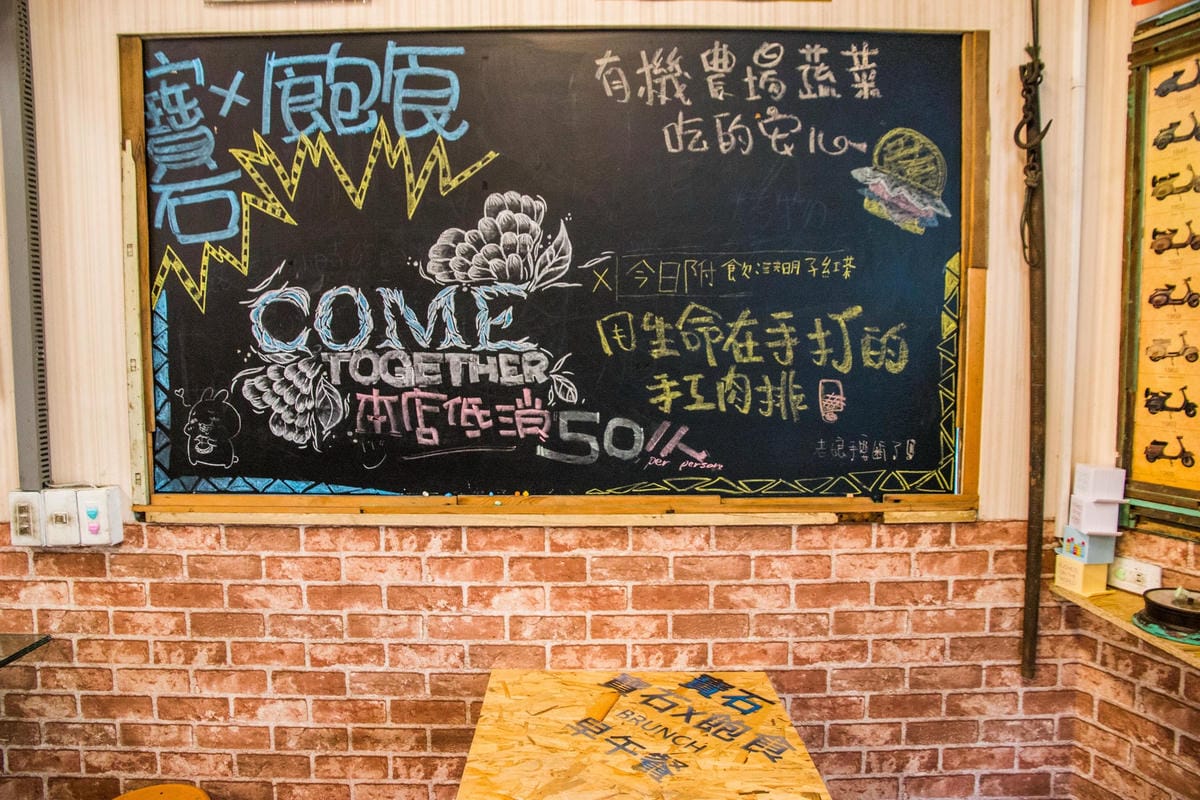 寶石×飽食
有機農場蔬菜
吃的安心
×今日附飲決明子紅茶
用生命在手打的
手工肉排
老娘手要斷了!
COME
TOGETHER
本店低消50/人
per person
寶石
寶石X飽食
BRUNCH
早午餐